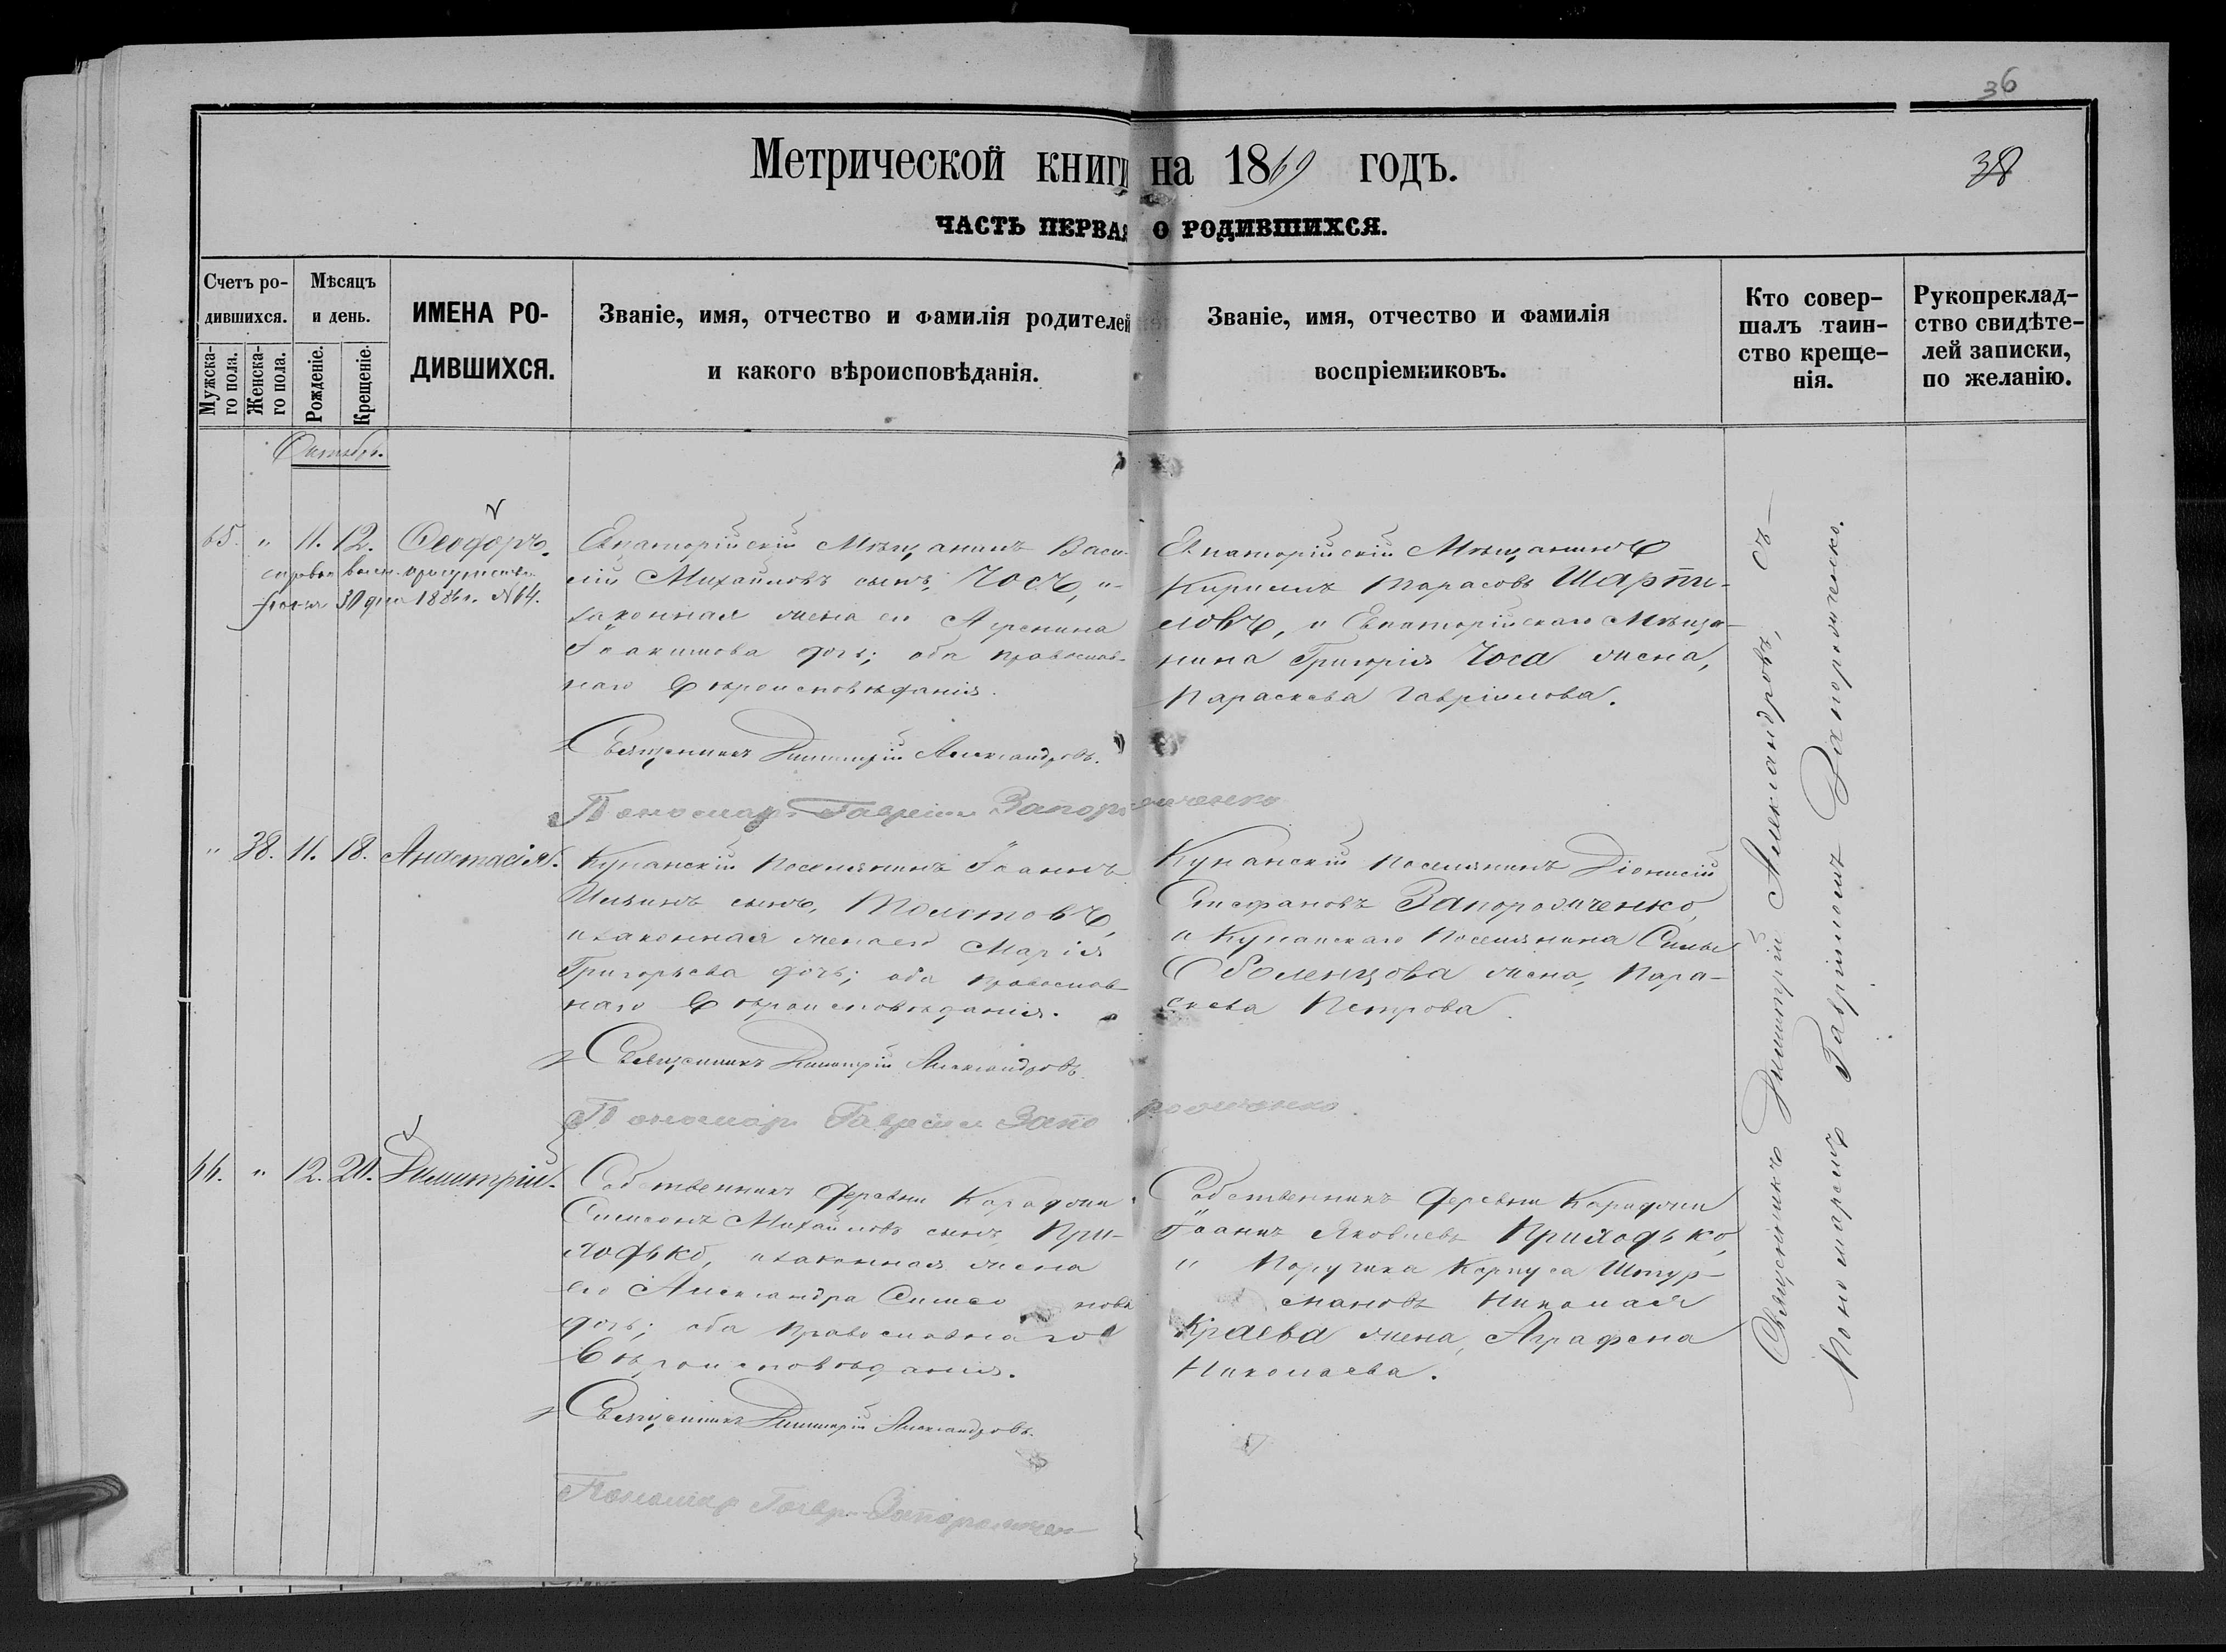 36
Метрической книги на 1869 годъ.
38
ЧАСТЬ ПЕРВАЯ О РОДИВШИХСЯ.
Счетъ ро-
дившихся.
Мужска-
го пола.
Женска-
го пола.
Мѣсяцъ
и день.
Рожденіе.
Крещеніе.
ИМЕНА РО-
ДИВШИХСЯ.
Званіе, имя, отчество и фамилія родителей
и какого вѣроисповѣданія.
Званіе, имя, отчество и фамилія
воспріемниковъ.
Кто совер-
шалъ таин-
ство креще-
нія.
Рукопреклад-
ство свидѣте-
лей записки,
по желанію.
Октябрь.
65. " 11. 12. Ѳеодоръ.
30 дня 188 г. №64.
Евпаторійскій Мѣщанинъ Васи-
лій Михайловъ сынъ, Чосъ, и
законная жена его Агрепина
Іоакимова дочь; оба православ-
наго Вѣроисповѣданія.
Священникъ Димитрій Александровъ.
Пономарь Гавріилъ Запорожченко
Евпаторійскій Мѣщанинъ
Кириллъ Тарасовъ Шарпи-
ловъ, и Евпаторійскаго Мѣща-
нина Григорія Чоса жена,
Параскева Гавріилова.
" 38. 11. 18. Анастасія.
Кунанскій Поселянинъ Іоаннъ
Ильинъ сынъ, Толстовъ,
и законная жена его Марія
Григорьева дочь; оба православ-
наго Вѣроисповѣданія.
Священникъ Димитрій Александровъ
Пономарь Гавріилъ Запорожченко.
Кунанскій Поселянинъ Діонисій
Стефановъ Запорожченко,
и Кунанскаго Поселянина Силы
Оболенцова жена, Пара-
скева Петрова.
66. " 12. 20. Димитрій.
Собственникъ деревни Караджи
Симеонъ Михайловъ сынъ, При-
ходько, и законная жена
его Александра Симеонова
дочь; оба православнаго
Вѣроисповѣданія.
Священникъ Димитрій Александровъ.
Пономарь Гавр. Запорожчен
Собственникъ деревни Караджи
Іоаннъ Яковлевъ Приходько,
и Поручика Корпуса Штур-
мановъ Николая
Краева жена, Аграфена
Николаева.
Священникъ Димитрій Александровъ, съ
Пономаремъ Гавріиломъ Запорожченко.